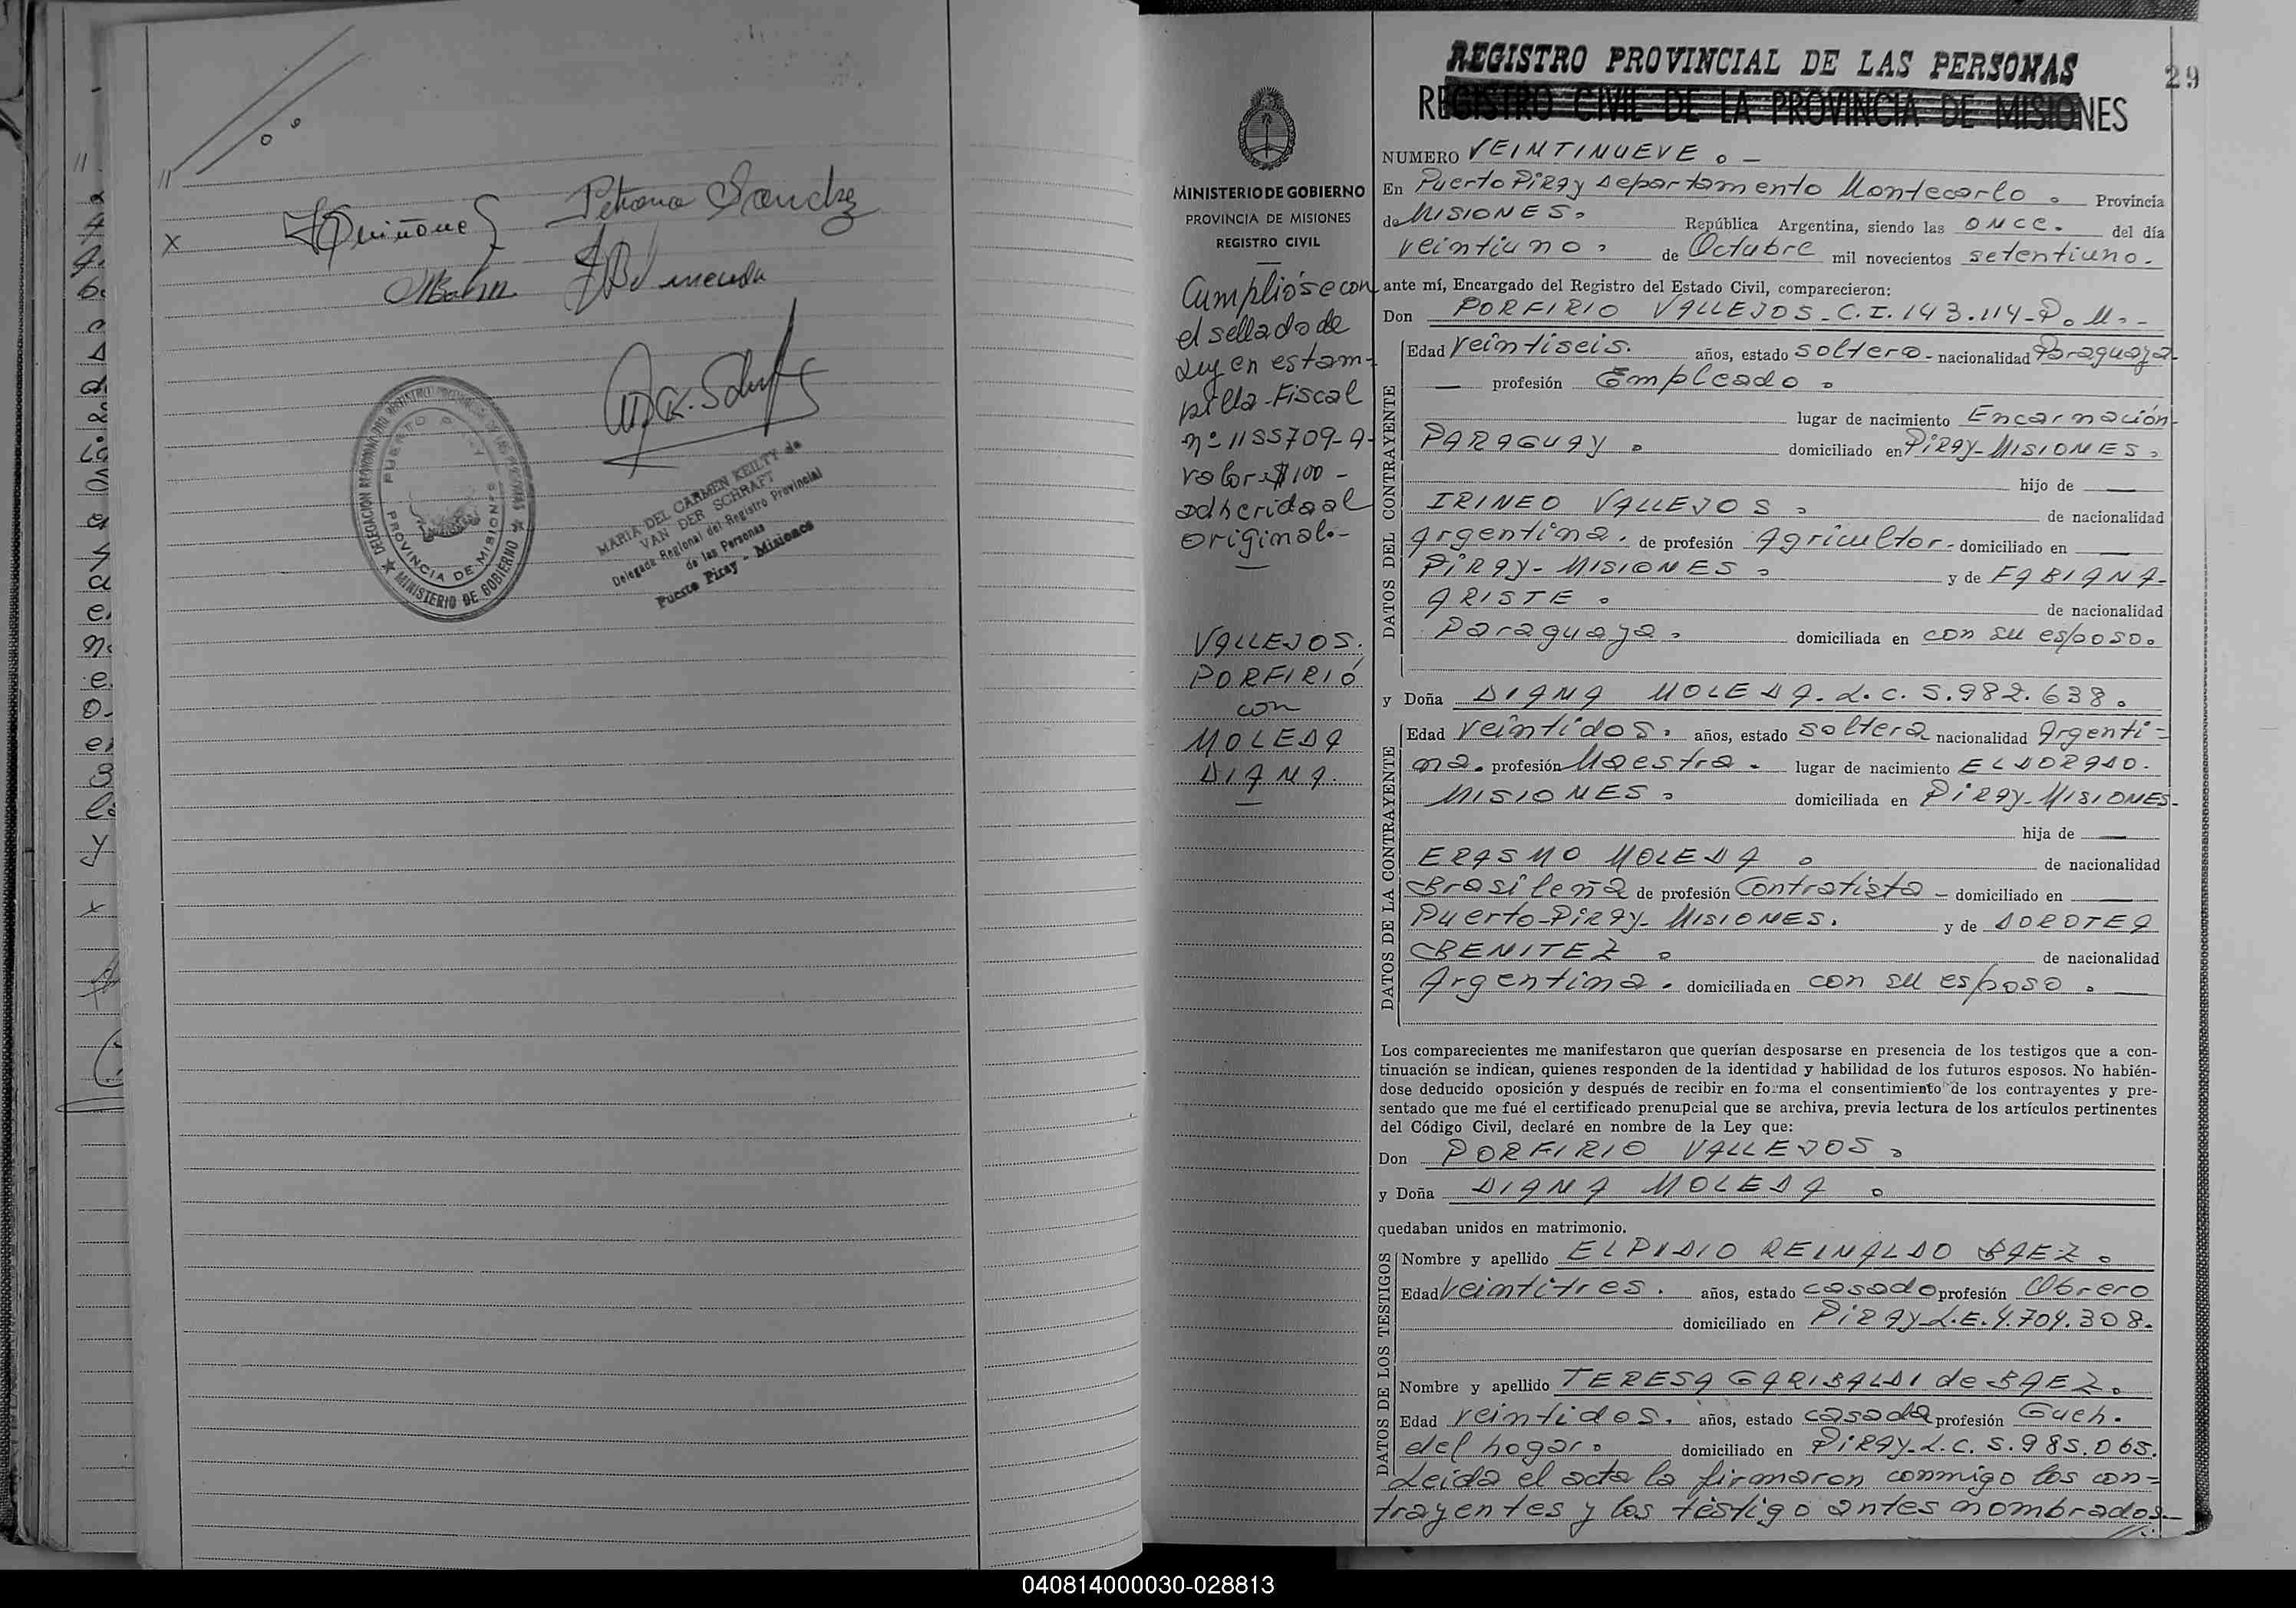 Quiñones Petrona Sanchez
DELEGACION REGIONAL DEL REGISTRO PROVINCIAL DE LAS PERSONAS
PUERTO PIRAY
PROVINCIA DE MISIONES
MINISTERIO DE GOBIERNO
MARIA DEL CARMEN KEILTY de
VAN DER SCHRAFT
Delegada Regional del Registro Provincial
de las Personas
Puerto Piray - Misiones
MINISTERIO DE GOBIERNO
PROVINCIA DE MISIONES
REGISTRO CIVIL
Cumplióse con
el sellado de
Ley en estam-
pilla-Fiscal
nº 1155709-A-
valor $100-
adherida al
original.-
VALLEJOS.
PORFIRIO
con
MOLEDA
DIANA.
REGISTRO PROVINCIAL DE LAS PERSONAS
29
REGISTRO CIVIL DE LA PROVINCIA DE MISIONES
NUMERO VEINTINUEVE. -
En Puerto Piray Departamento Montecarlo. Provincia
de MISIONES. República Argentina, siendo las once. del día
veintiuno. de Octubre mil novecientos setentiuno.
ante mí, Encargado del Registro del Estado Civil, comparecieron:
Don PORFIRIO VALLEJOS-C.I.143.114-P.M.-
DATOS DEL CONTRAYENTE
Edad veintiseis. años, estado soltero- nacionalidad Paraguaya-
— profesión Empleado.
lugar de nacimiento Encarnación-
PARAGUAY. domiciliado en PIRAY-MISIONES.
hijo de —
IRINEO VALLEJOS. de nacionalidad
Argentina. de profesión Agricultor- domiciliado en —
PIRAY-MISIONES. y de FABIANA-
ARISTE. de nacionalidad
Paraguaya. domiciliada en con su esposo.
y Doña DIANA MOLEDA. L.C. 5.982.638.
DATOS DE LA CONTRAYENTE
Edad veintidos. años, estado soltera nacionalidad Argenti=
na. profesión Maestra. lugar de nacimiento ELDORADO.
MISIONES. domiciliada en PIRAY-MISIONES-
hija de —
ERASMO MOLEDA. de nacionalidad
Brasileña de profesión Contratista- domiciliado en —
Puerto-PIRAY-MISIONES. y de DOROTEA
BENITEZ. de nacionalidad
Argentina. domiciliada en con su esposo. —
Los comparecientes me manifestaron que querían desposarse en presencia de los testigos que a con-
tinuación se indican, quienes responden de la identidad y habilidad de los futuros esposos. No habién-
dose deducido oposición y después de recibir en forma el consentimiento de los contrayentes y pre-
sentado que me fué el certificado prenupcial que se archiva, previa lectura de los artículos pertinentes
del Código Civil, declaré en nombre de la Ley que:
Don PORFIRIO VALLEJOS.
y Doña DIANA MOLEDA.
quedaban unidos en matrimonio.
DATOS DE LOS TESTIGOS
Nombre y apellido ELPIDIO REINALDO BAEZ.
Edad veintitres. años, estado casado profesión Obrero
domiciliado en PIRAY-L.E.4.704.308.
Nombre y apellido TERESA GARIBALDI de BAEZ.
Edad veintidos. años, estado casada profesión Queh.
del hogar. domiciliado en PIRAY-L.C. 5.985.065.
Leida el acta la firmaron conmigo los con=
trayentes y los testigo antes nombrados-
//.
040814000030-028813